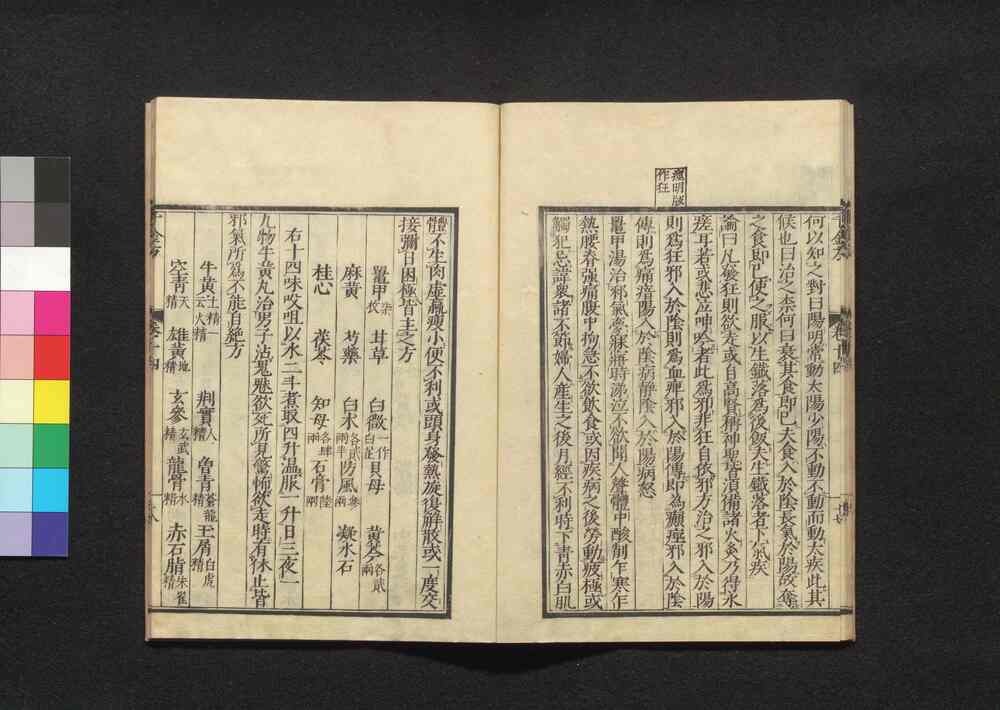 癲明版
作狂
何以知之對曰陽明常動太陽少陽不動不動而動大疾此其
候也曰治之柰何曰衰其食即已夫食入於陰長氣於陽故奪
之食即已使之服以生鐵落為後飯夫生鐵落者下氣疾
論曰凡發狂則欲走或自高賢稱神聖皆須備諸火灸乃得永
瘥耳若或悲泣呻吟者此為邪非狂自依邪方治之邪入於陽
則為狂邪入於陰則為血痺邪入於陽傳即為癲痙邪入於陰
傳則為痛瘖陽入於陰病靜陰入於陽病怒
鼉甲湯治邪氣夢寐寤時涕泣不欲聞人聲體中酸削乍寒乍
熱腰脊強痛腹中拘急不欲飲食或因疾病之後勞動疲極或
觸犯忌諱眾諸不節婦人產生之後月經不利時下青赤白肌
體不生肉虛羸瘦小便不利或頭身發熱旋復解散或一度交
接彌日困極皆主之方
鼉甲柒枚 茸草 白薇一作白芷 貝母 黃芩各貳兩
麻黃 芍藥 白朮各貳兩半 防風參兩 凝水石
桂心 茯苓 知母各肆兩 石膏陸兩
右十四味㕮咀以水二斗煮取四升温服一升日三夜一
九物牛黃丸治男子沾鬼魅欲死所見驚怖欲走時有休止皆
邪氣所為不能自絕方
牛黃土精一云火精 荆實人精 曾青蒼龍精 玉屑白虎精
空青天精 雄黃地精 玄參玄武精 龍骨水精 赤石脂朱雀精
千金方
卷十四